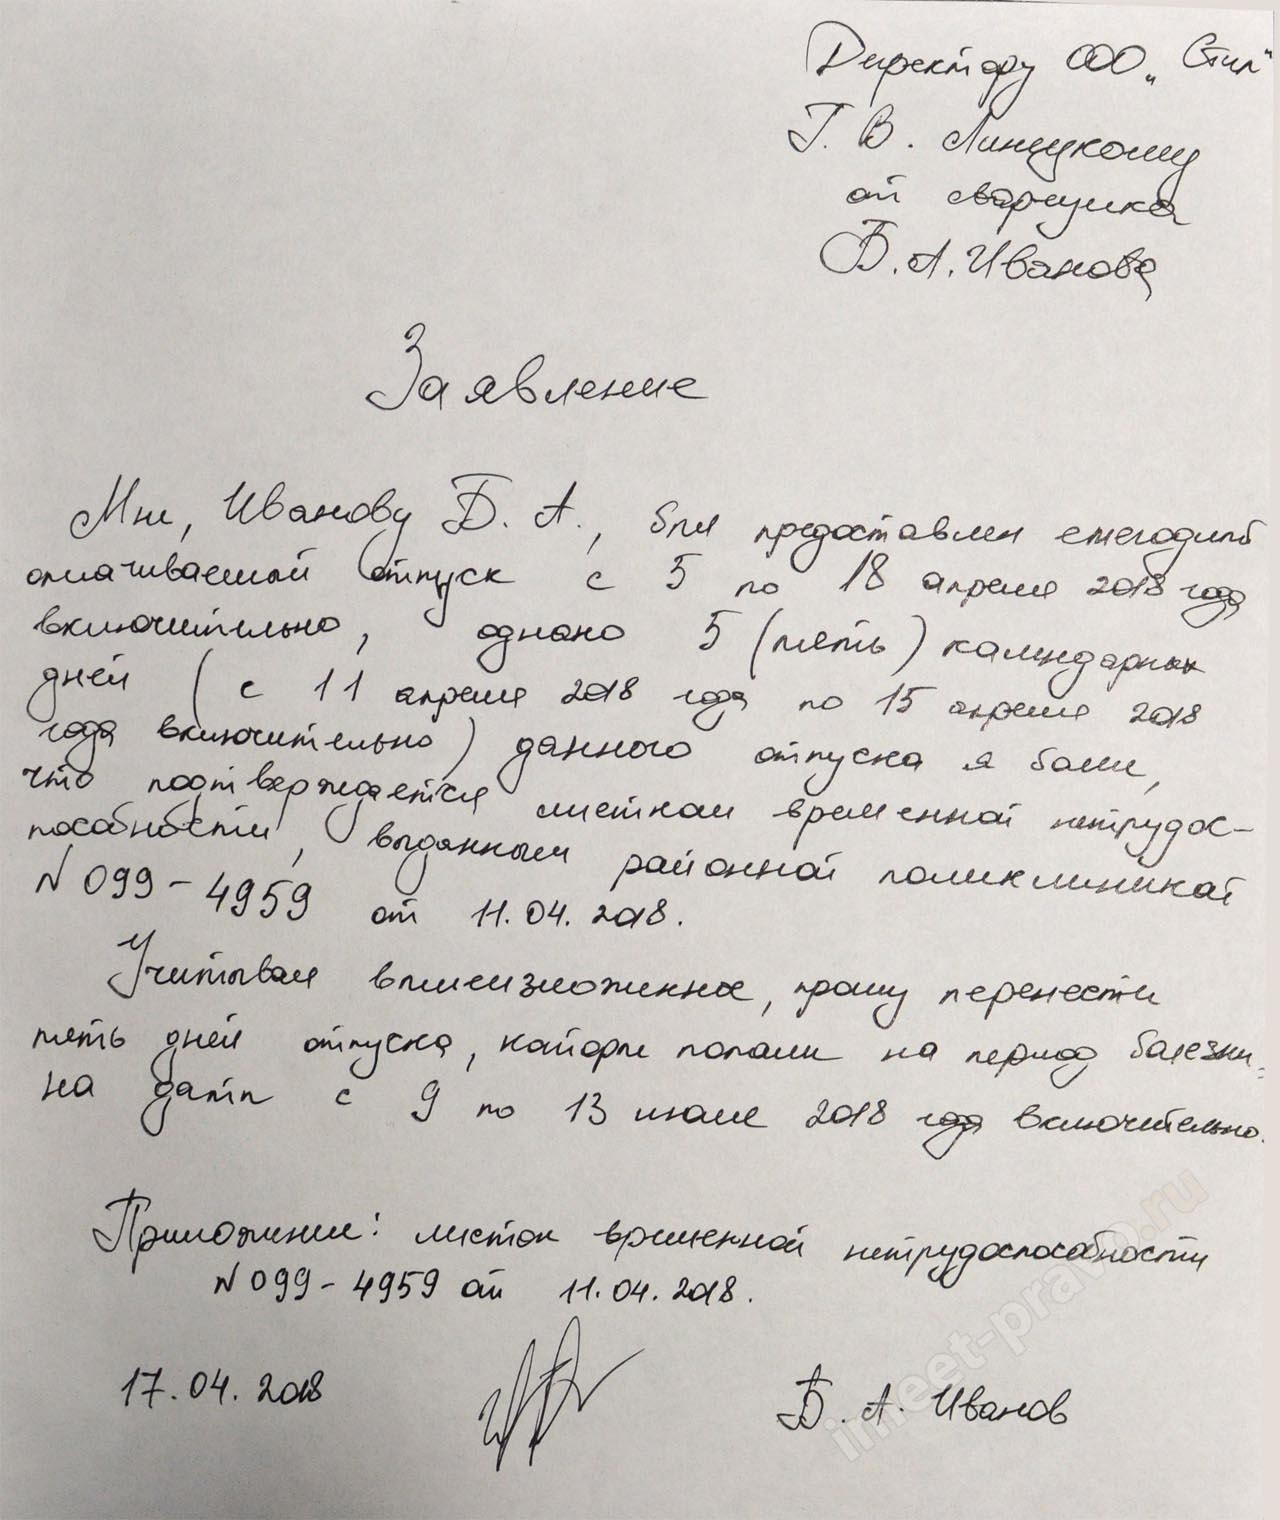 Директору ООО „Стил"
Г. В. Линцкому
от сварщика
Б. А. Иванова
Заявление
Мне, Иванову Б. А., был предоставлен ежегодный
оплачиваемый отпуск с 5 по 18 апреля 2018 года
включительно, однако 5 (пять) календарных
дней (с 11 апреля 2018 года по 15 апреля 2018
года включительно) данного отпуска я болел,
что подтверждается листком временной нетрудос-
пособности, выданным районной поликлиникой
N 099-4959 от 11.04.2018.
Учитывая вышеизложенное, прошу перенести
пять дней отпуска, которые попали на период болезни,
на даты с 9 по 13 июля 2018 года включительно.
Приложение: листок временной нетрудоспособности
N 099-4959 от 11.04.2018.
17.04.2018
Б. А. Иванов
imeet-pravo.ru